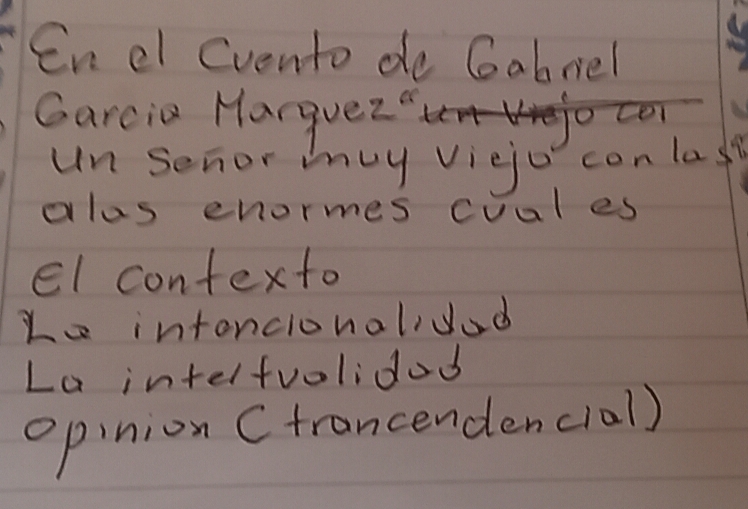 En el cuento de Gabriel
Garcia Marquez " un viejo con
un señor muy viejo con las
alas enormes cual es
El contexto
La intencionalidad
La intertualidad
opinion (trancendencial)